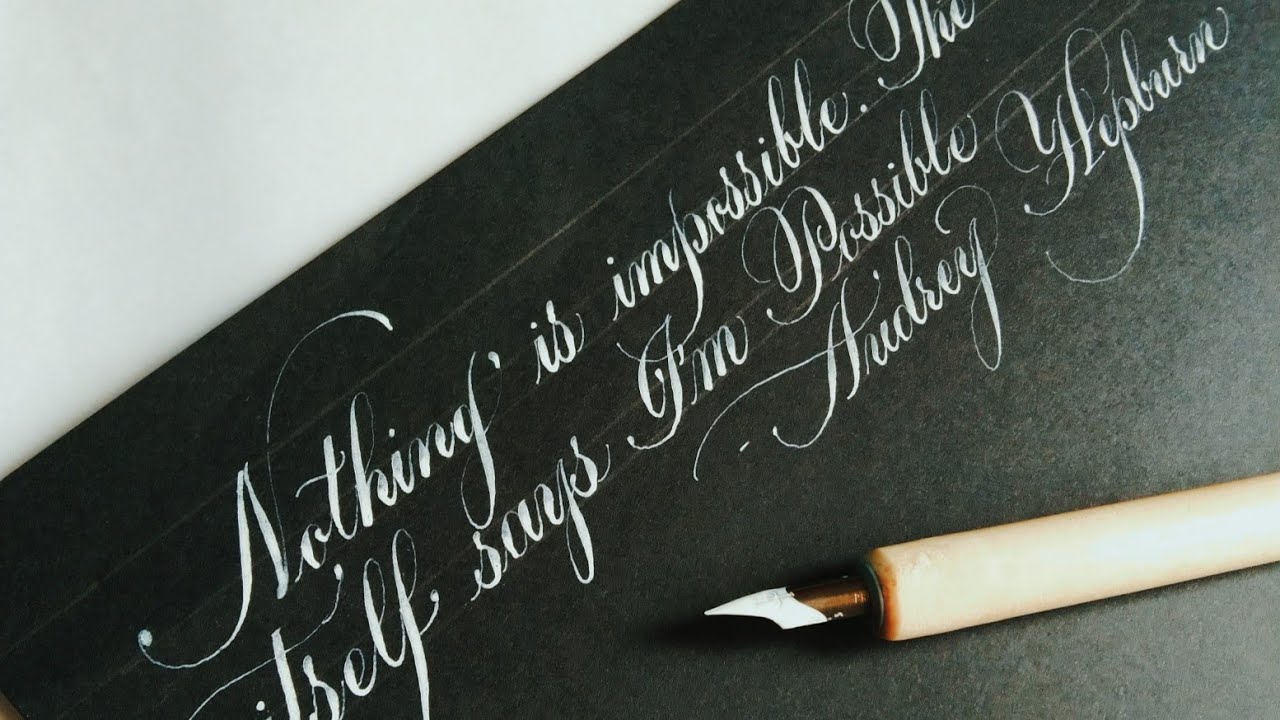 Nothing is impossible. The
itself says I'm Possible
- Audrey Hepburn